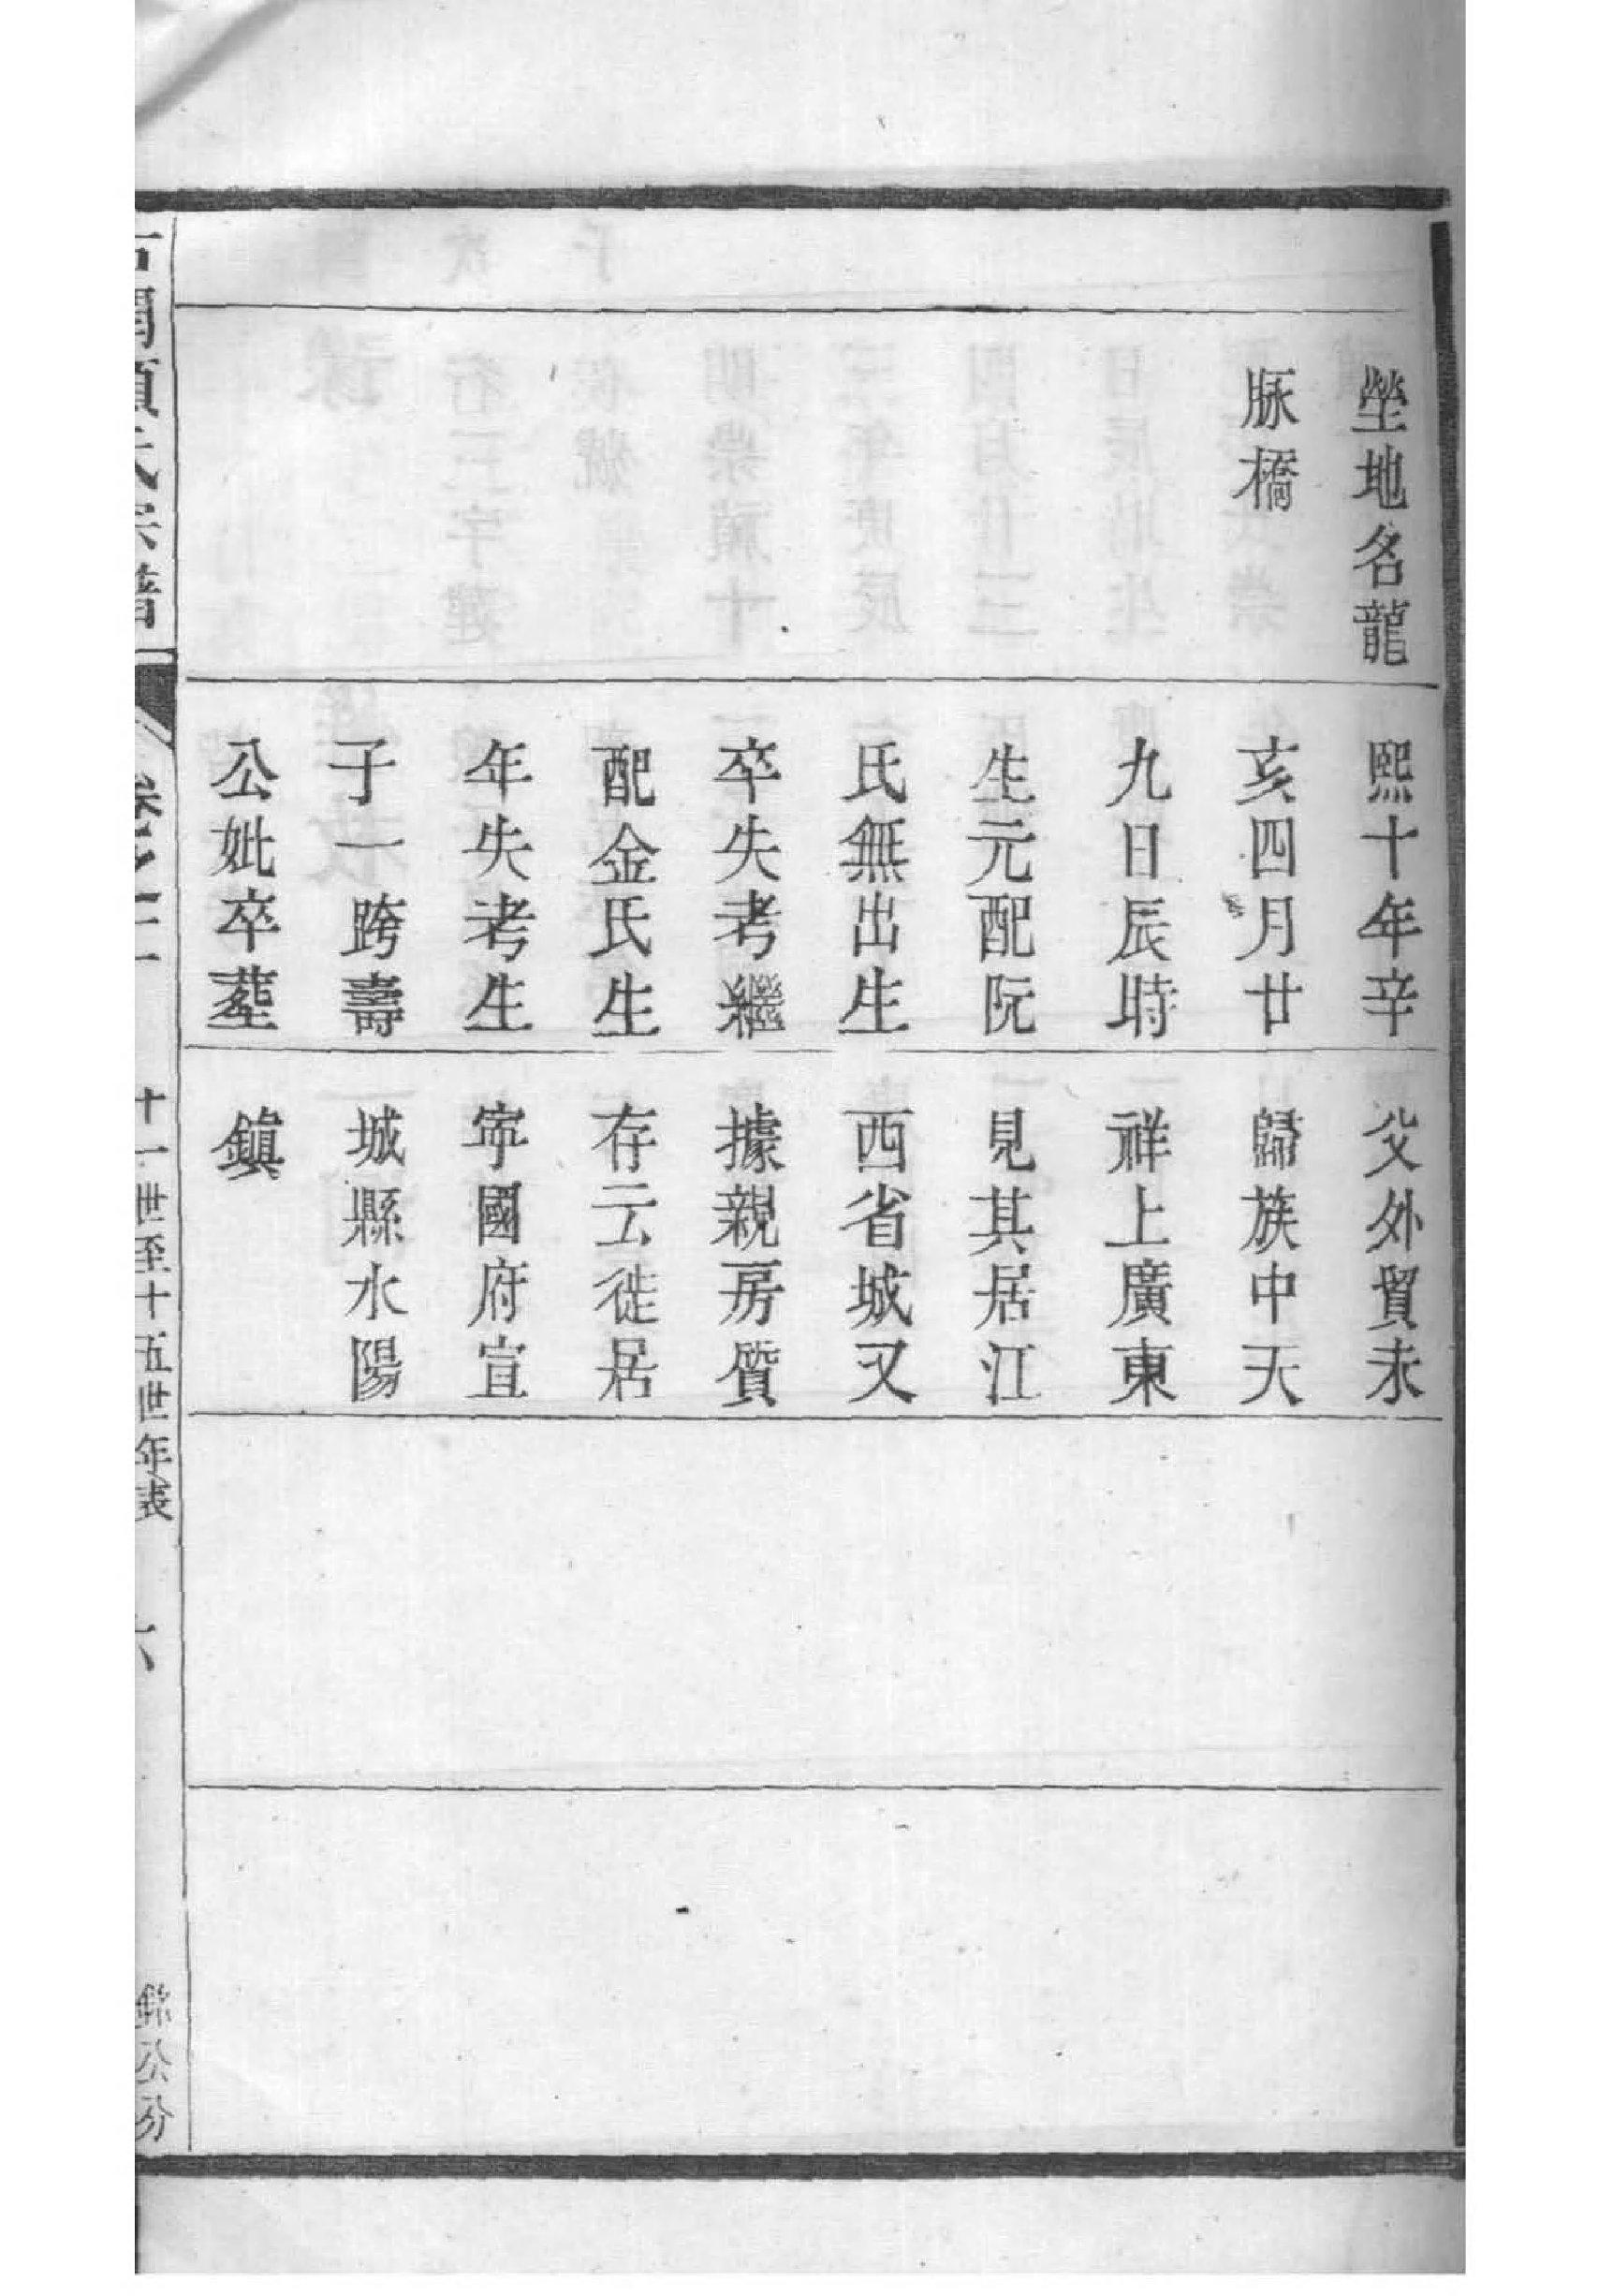 塋地名龍
脉橋
熙十年辛
亥四月廿
九日辰時
生元配阮
氏無出生
卒失考繼
配金氏生
年失考生
子一跨壽
公妣卒塟
父外貿未
歸族中天
祥上廣東
見其居江
西省城又
據親房質
存云徙居
寧國府宣
城縣水陽
鎭
氏宗譜
十一世至十五世年表
六
公分